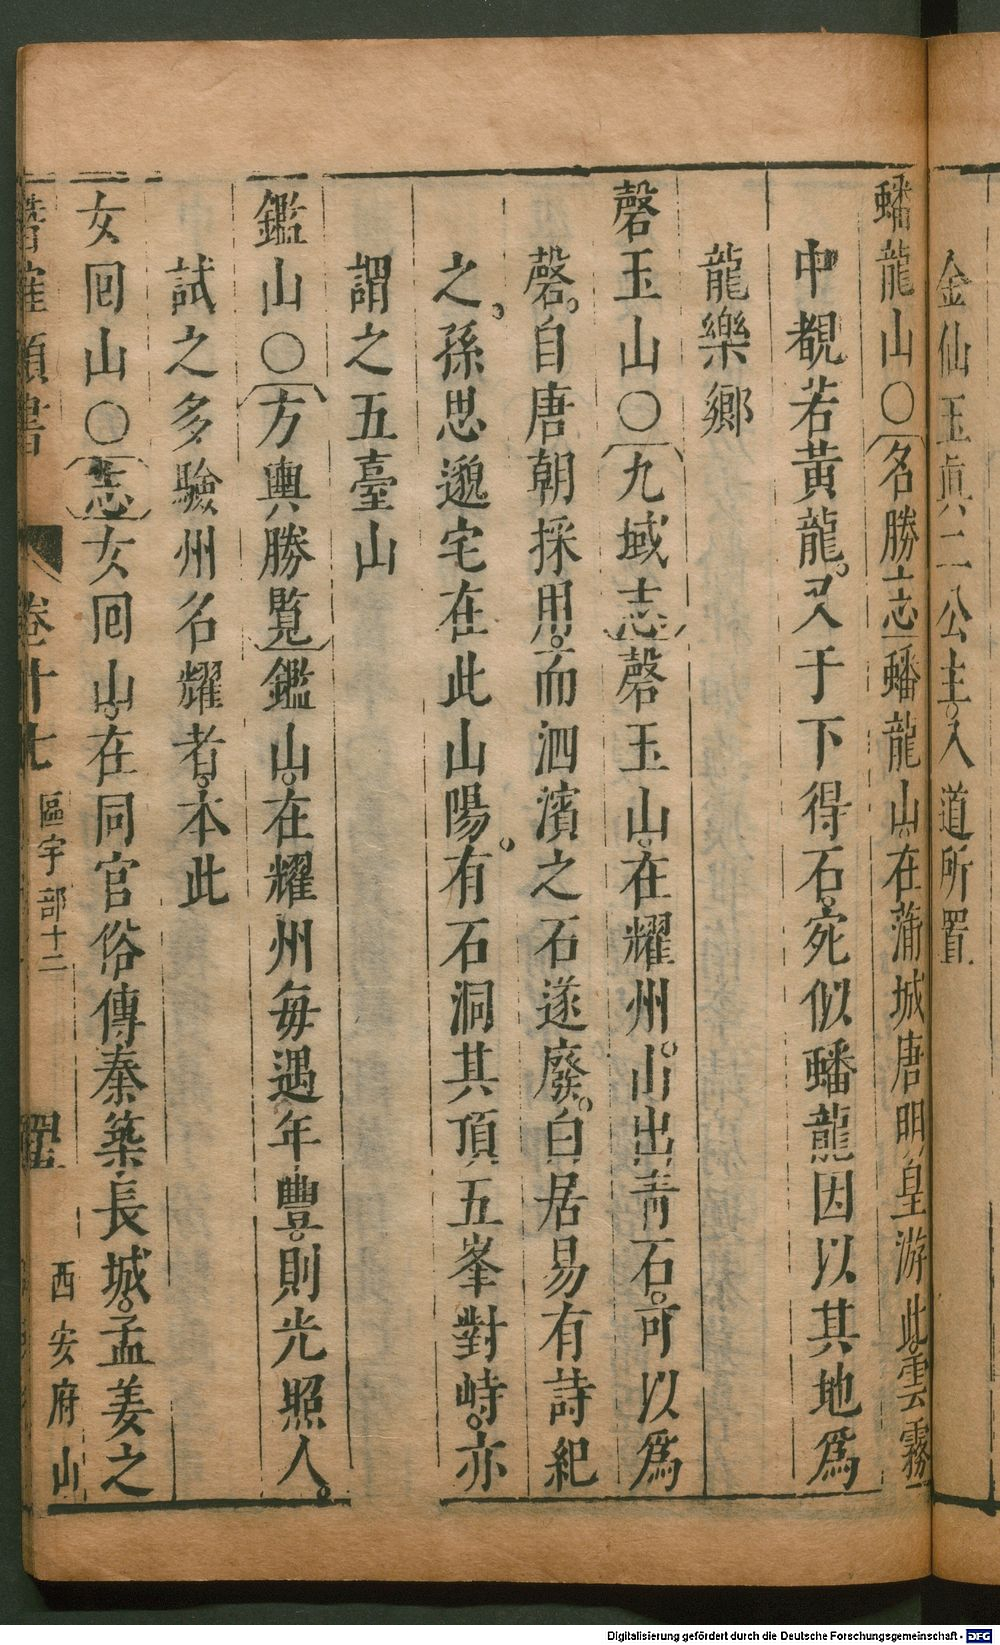 金仙玉眞二公主入道所置
蟠龍山〇名勝志蟠龍山在蒲城唐明皇游此雲霧
中覩若黃龍又于下得石宛似蟠龍因以其地爲
龍樂鄉
磬玉山〇九域志磬玉山在耀州山出青石可以爲
磬自唐朝採用而泗濱之石遂廢白居易有詩紀
之孫思邈宅在此山陽有石洞其頂五峯對峙亦
謂之五臺山
鑑山〇方輿勝覧鑑山在耀州每遇年豐則光照人
試之多驗州名耀者本此
女回山〇志女回山在同官俗傳秦築長城孟姜之
潛確類書 卷十七 區宇部十二 西安府山
Digitalisierung gefördert durch die Deutsche Forschungsgemeinschaft - DFG